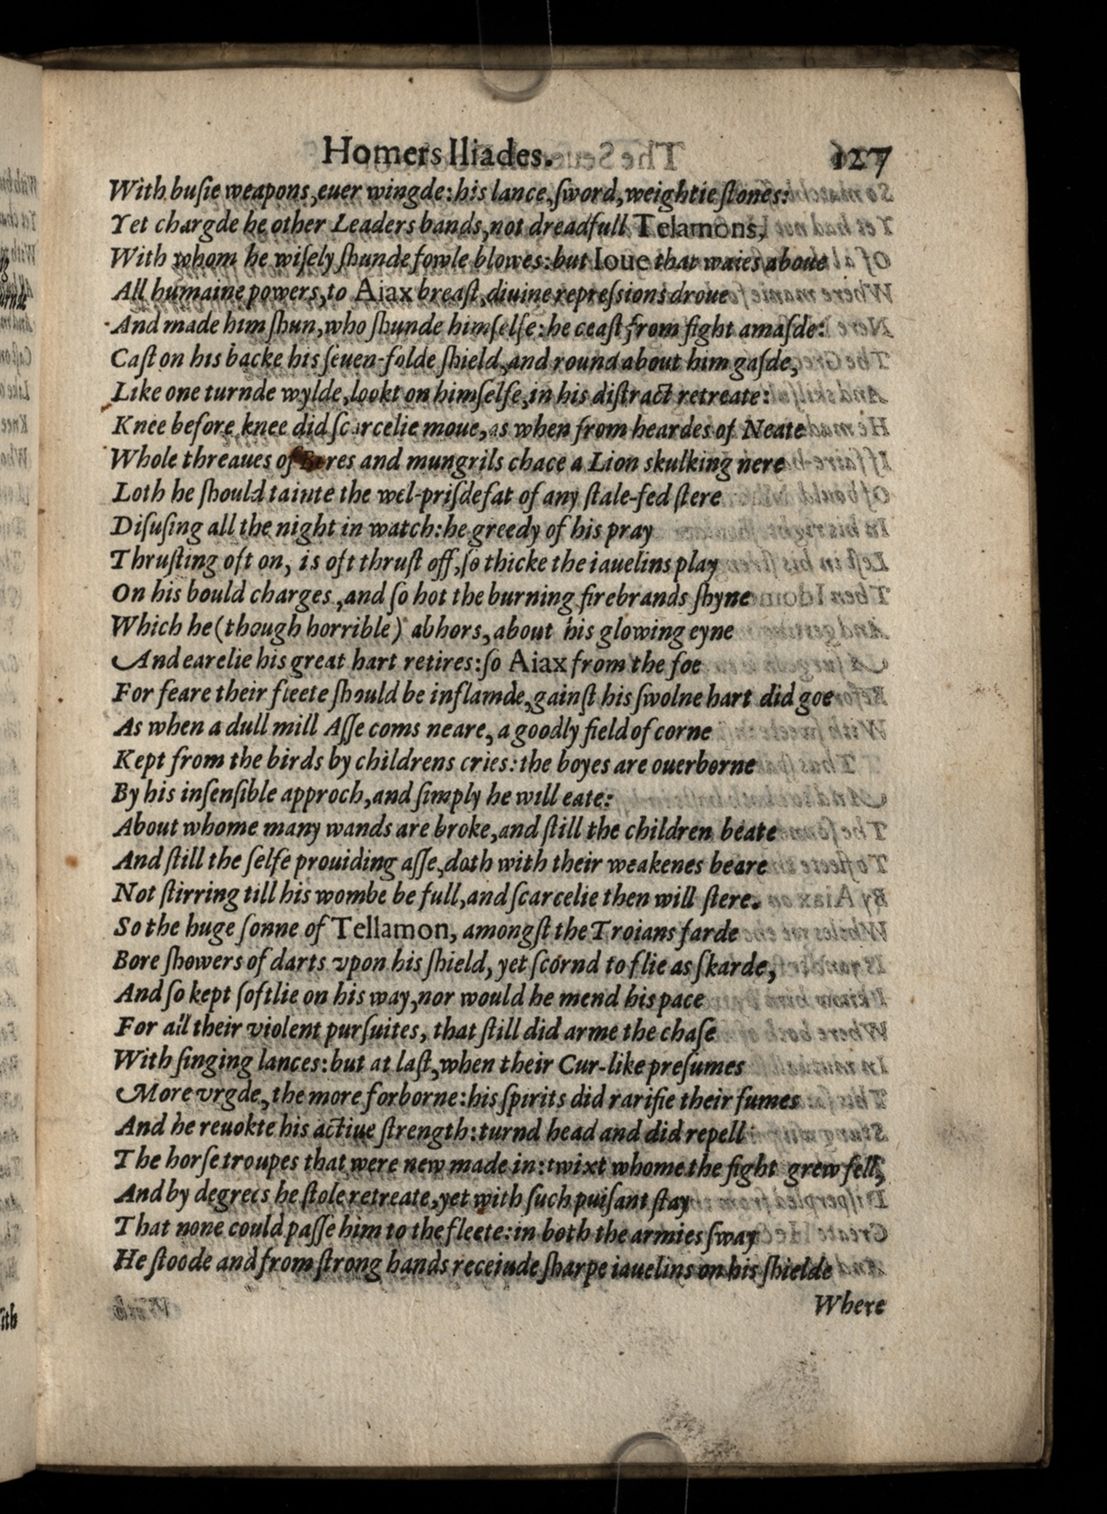 Homers Iliades. 127
With buſie weapons, euer wingde: his lance, ſword, weightie ſtones:
Yet chargde he other Leaders bands, not dreadfull Telamons,
With whom he wiſely ſhunde fowle blowes: but Ioue that waies aboue
All humaine powers, to Aiax breaſt, diuine repreſsions droue
And made him ſhun, who ſhunde himſelfe: he ceaſt from fight amaſde:
Caſt on his backe his ſeuen-folde ſhield, and round about him gaſde,
Like one turnde wylde, lookt on himſelfe, in his diſtract retreate:
Knee before knee did ſcarcelie moue, as when from heardes of Neate
Whole threaues of Bores and mungrils chace a Lion skulking nere
Loth he ſhould tainte the wel-priſde fat of any ſtale-fed ſtere
Diſuſing all the night in watch: he greedy of his pray
Thruſting oft on, is oft thruſt off, ſo thicke the iauelins play
On his bould charges, and ſo hot the burning firebrands ſhyne
Which he (though horrible) abhors, about his glowing eyne
And earelie his great hart retires: ſo Aiax from the foe
For feare their fleete ſhould be inflamde, gainſt his ſwolne hart did goe
As when a dull mill Aſſe coms neare, a goodly field of corne
Kept from the birds by childrens cries: the boyes are ouerborne
By his inſenſible approch, and ſimply he will eate:
About whome many wands are broke, and ſtill the children beate
And ſtill the ſelfe prouiding aſſe, doth with their weakenes beare
Not ſtirring till his wombe be full, and ſcarcelie then will ſtere.
So the huge ſonne of Tellamon, amongſt the Troians farde
Bore ſhowers of darts vpon his ſhield, yet ſcornd to flie as ſkarde,
And ſo kept ſoftlie on his way, nor would he mend his pace
For all their violent purſuites, that ſtill did arme the chaſe
With ſinging lances: but at laſt, when their Cur-like preſumes
More vrgde, the more forborne: his ſpirits did rarifie their fumes
And he reuokte his actiue ſtrength: turnd head and did repell
The horſe troupes that were new made in: twixt whome the fight grew fell,
And by degrees he ſtole retreate, yet with ſuch puiſant ſtay
That none could paſſe him to the fleete: in both the armies ſway
He ſtoode and from ſtrong hands receiude ſharpe iauelins on his ſhielde
Where